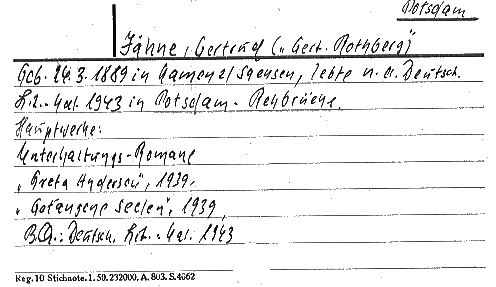 Potsdam
Jähne, Gertrud („Gert. Rothberg")
Geb. 24.3.1889 in Kamenz/Sachsen, lebte n. d. Deutsch.
Lit.-Kal. 1943 in Potsdam-Rehbrücke.
Hauptwerke:
Unterhaltungs-Romane
„Greta Andersen", 1939,
„Gefangene Seelen", 1939,
B.Q.: Deutsch. Lit.-Kal. 1943
Reg. 10 Stichnote. 1. 50. 232000. A. 803. S. 4662